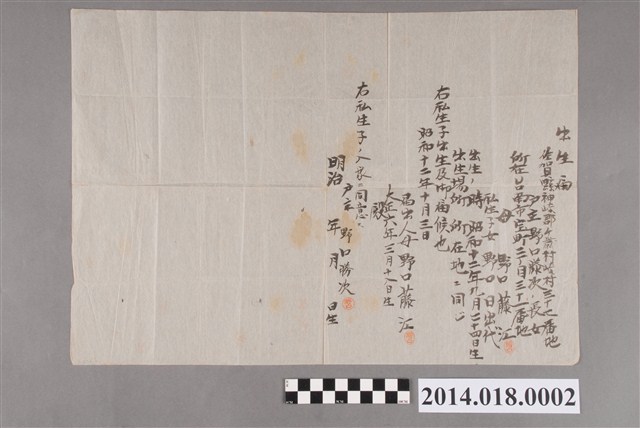 出生届
佐賀縣神埼郡 村 村三十七番地
戸主野口藤次長女
所在台南市宝町二ノ三十一番地
母 野口藤江
私生子女 野口日出代
出生ノ時 昭和十二年九月二十四日生
出生場所 所在地ニ同シ
右私生子出生及御届候也
昭和十二年十月三日
届出人母 野口藤江
大正六年三月十八日生
右私生子ノ入家ニ同意ス
戸主 野口勝次
明治 年 月 日生
2014.018.0002